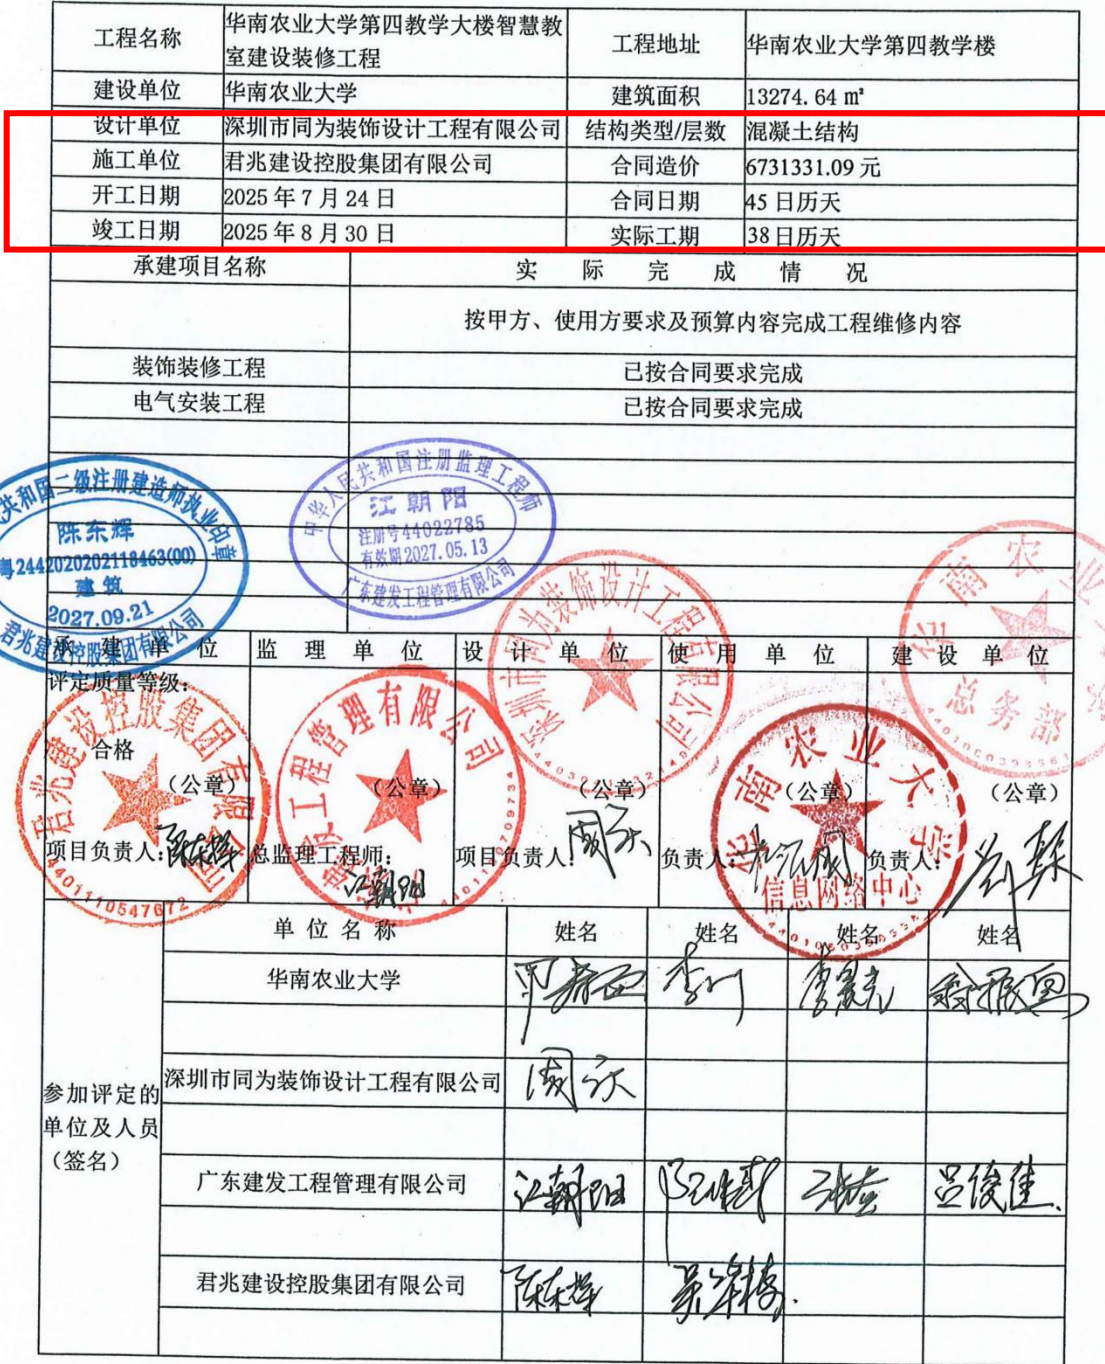 工程名称 华南农业大学第四教学大楼智慧教 工程地址 华南农业大学第四教学楼
室建设装修工程
建设单位 华南农业大学 建筑面积 13274.64 m²
设计单位 深圳市同为装饰设计工程有限公司 结构类型/层数 混凝土结构
施工单位 君兆建设控股集团有限公司 合同造价 6731331.09 元
开工日期 2025 年 7 月 24 日 合同日期 45 日历天
竣工日期 2025 年 8 月 30 日 实际工期 38 日历天
承建项目名称 实 际 完 成 情 况
按甲方、使用方要求及预算内容完成工程维修内容
装饰装修工程 已按合同要求完成
电气安装工程 已按合同要求完成
共和国二级注册建造师执业印章
陈东辉
粤2442020202118463(00)
建筑
2027.09.21
君兆建设控股集团有限公司
中华人民共和国注册监理工程师
江朝阳
注册号44022785
有效期2027.05.13
广东建发工程管理有限公司
深圳市同为装饰设计工程有限公司
华南农业大
总务部
承 建 单 位 监 理 单 位 设 计 单 位 使 用 单 位 建 设 单 位
评定质量等级:
合格
(公章) (公章) (公章) (公章) (公章)
君兆建设控股集团有限公司
4401110547672
工程管理有限公司
华南农业大学
信息网络中心
项目负责人: 陈东辉 总监理工程师: 江朝阳 项目负责人: 周庆 负责人: 负责人:
参加评定的
单位及人员
(签名)
单 位 名 称 姓名 姓名 姓名 姓名
华南农业大学
深圳市同为装饰设计工程有限公司 周庆
广东建发工程管理有限公司 江朝阳 吕俊佳
君兆建设控股集团有限公司 陈东辉